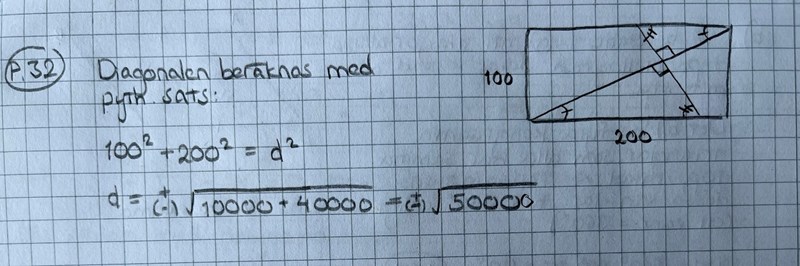 P.32
Diagonalen beräknas med
pyth. sats:
100² + 200² = d²
d = (±)√10000 + 40000 = (±)√50000
100
200